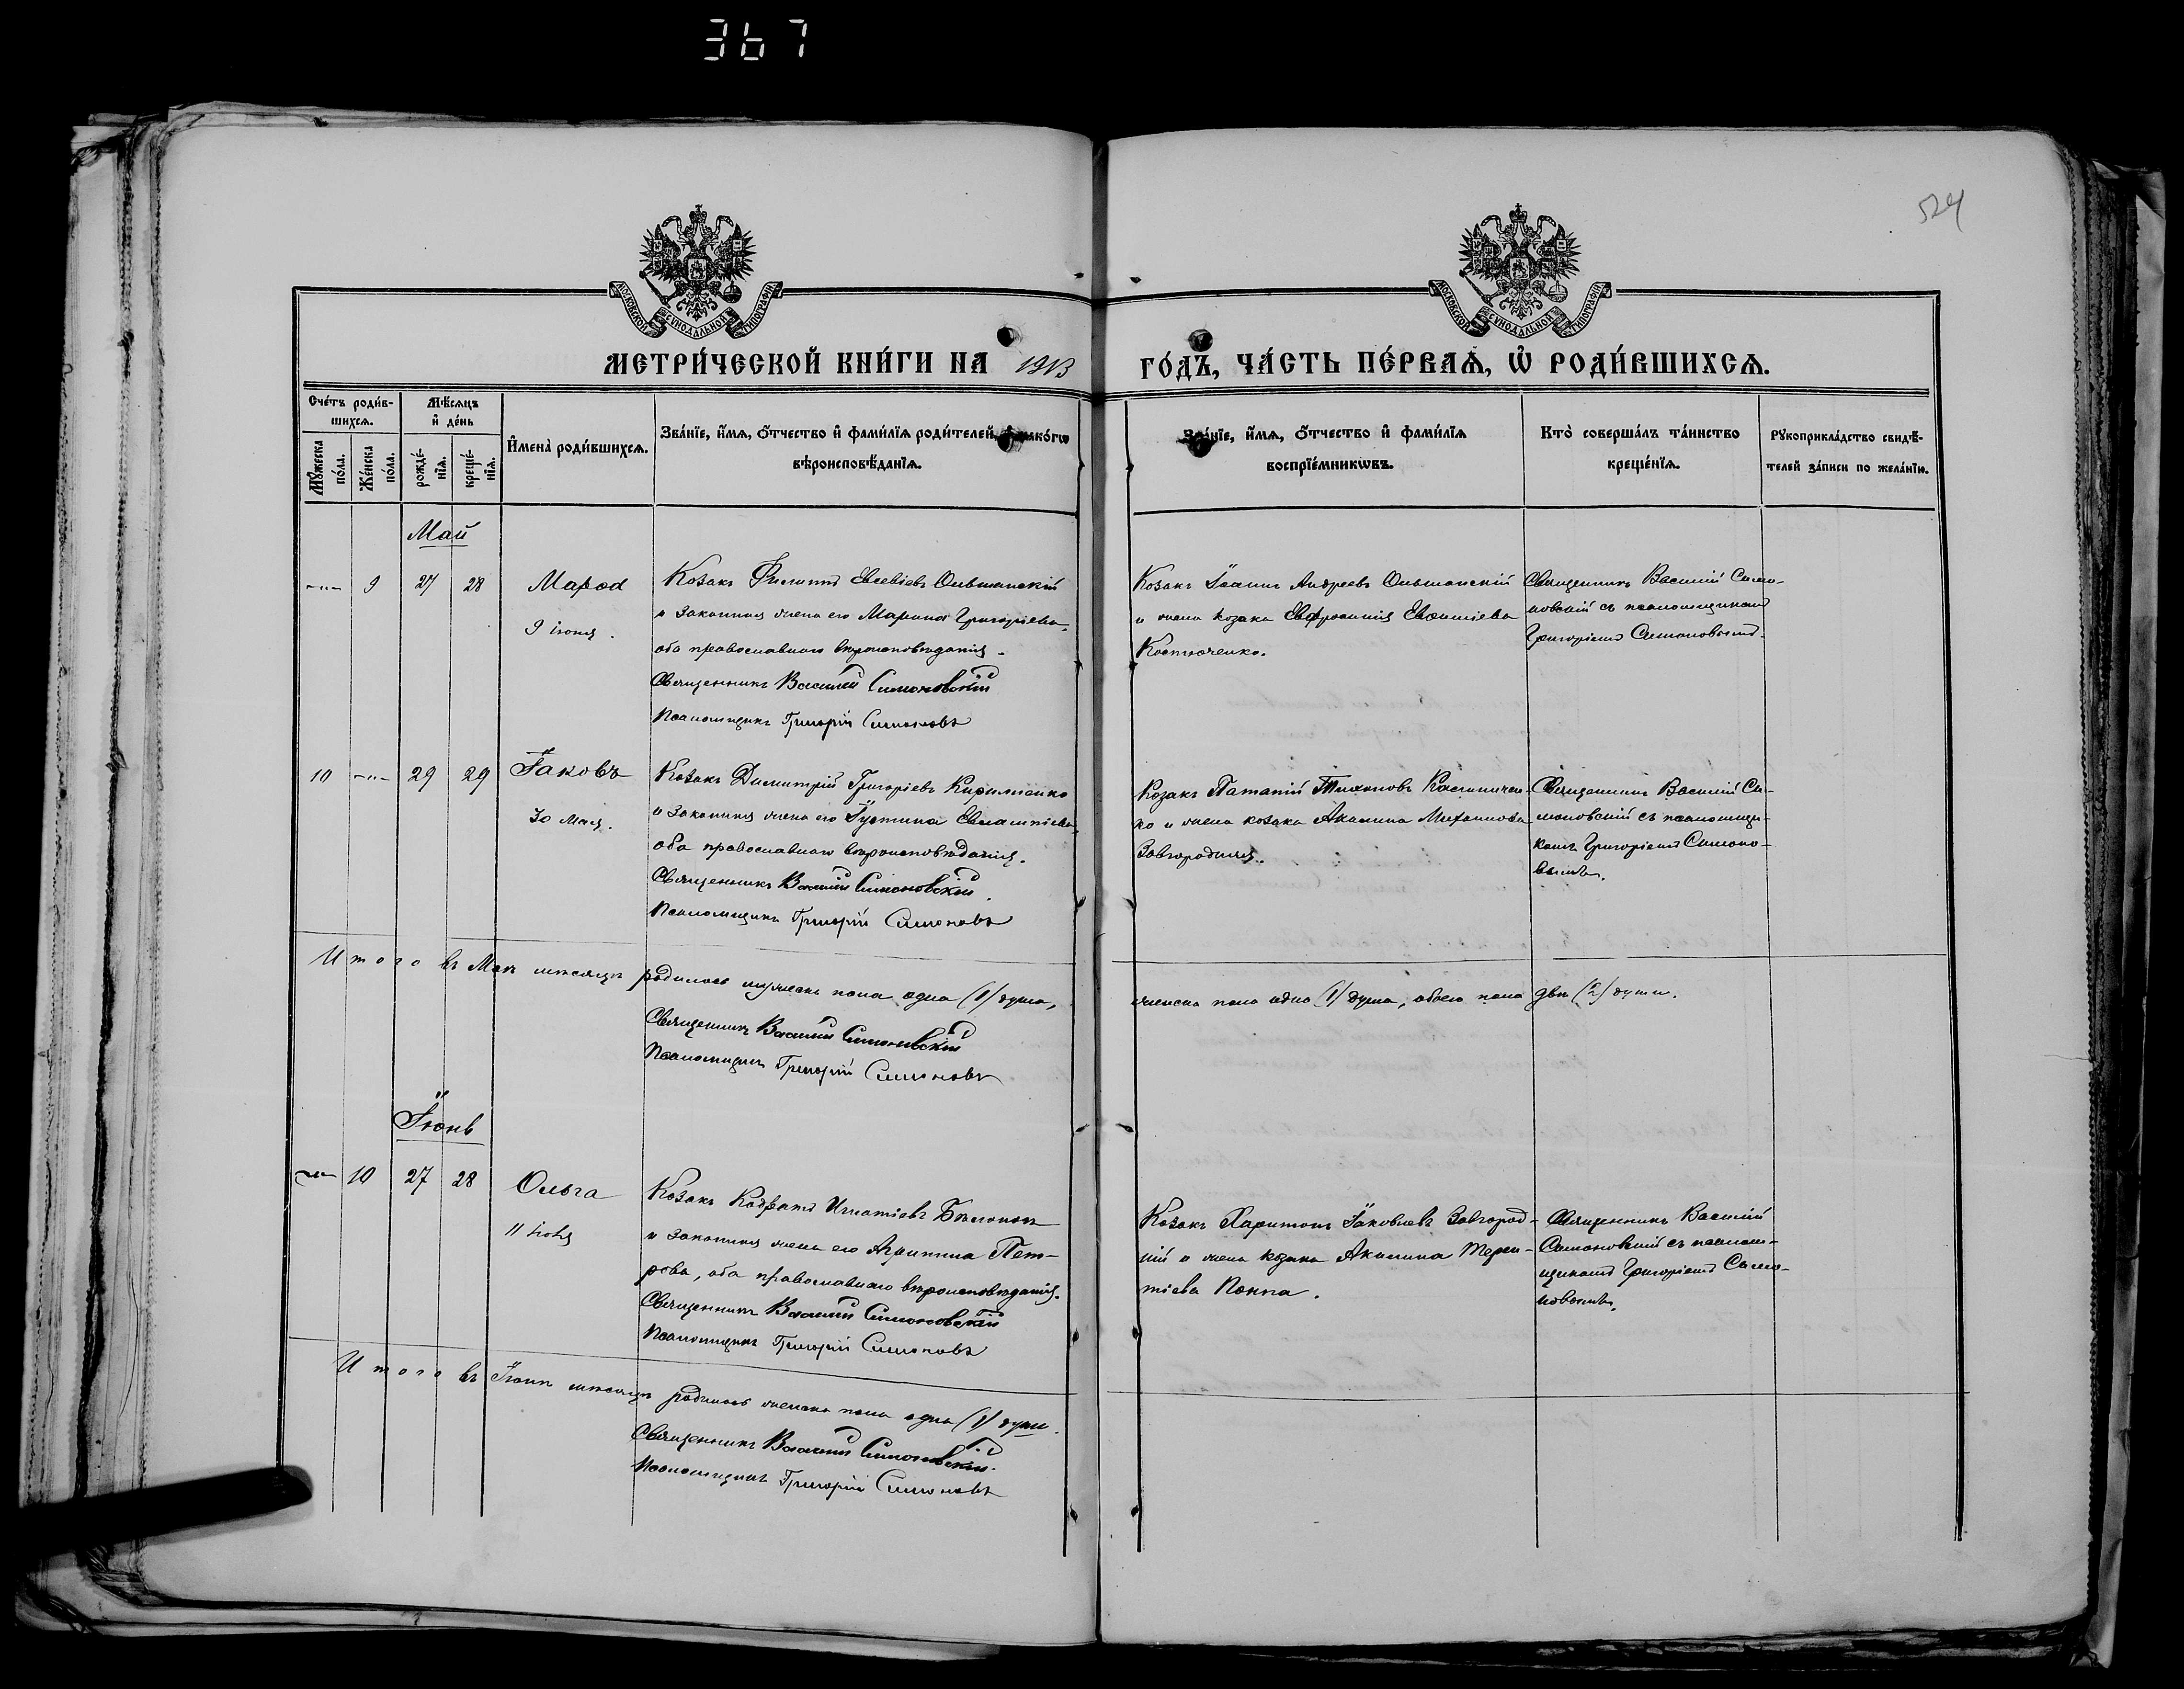 367
524
МОСКОВСКОЙ СѴНОДАЛЬНОЙ ТИПОГРАФІИ
МОСКОВСКОЙ СѴНОДАЛЬНОЙ ТИПОГРАФІИ
МЕТРИ́ЧЕСКОЙ КНИ́ГИ НА 1913 ГО́ДЪ, ЧА́СТЬ ПЕ́РВАѦ, Ѽ РОДИ́ВШИХСѦ.
Сче́тъ роди́в-
шихсѧ.
Мꙋ́жеска по́ла.
Же́нска по́ла.
Мѣ́сѧцъ
и҆ де́нь
рожде́-
нїѧ.
креще́-
нїѧ.
И҆мена̀ роди́вшихсѧ.
Зва́нїе, и҆́мѧ, ѻ҆́тчество и҆ фами́лїѧ роди́телей, и҆ како́гѡ
вѣроисповѣ́данїѧ.
Зва́нїе, и҆́мѧ, ѻ҆́тчество и҆ фами́лїѧ
воспрїе́мникѡвъ.
Кто̀ соверша́лъ та́инство
креще́нїѧ.
Рꙋкоприкла́дство свидѣ́-
телей за́писи по жела́нїю.
Май
-"- 9 27 28
9 іюня.
Козакъ Филиппъ Евсевіевъ Ольшанскій
и законная жена его Марина Григоріева,
оба православнаго вѣроисповѣданія.
Священникъ Василій Симоновскій
Псаломщикъ Григорій Симоновъ
Козакъ Іоаннъ Андреевъ Ольшанскій
и жена козака Евфросинія
Костюченко.
Священникъ Василій Симо-
новскій съ псаломщикомъ
Григоріемъ Симоновымъ.
10 -"- 29 29 Іаковъ
30 мая.
Козакъ Димитрій Григоріевъ Кириленко
и законная жена его Іустина Евлампіева,
оба православнаго вѣроисповѣданія.
Священникъ Василій Симоновскій.
Псаломщикъ Григорій Симоновъ
Козакъ Тихоновъ
ко и жена козака Акилина Михаилова
Завгородняя.
Священникъ Василій Си-
моновскій съ псаломщи-
комъ Григоріемъ Симоно-
вымъ.
Итого въ Маѣ мѣсяцѣ родилось мужеска пола одна (1) душа, женска пола одна (1) душа, обоего пола двѣ (2) души.
Священникъ Василій Симоновскій
Псаломщикъ Григорій Симоновъ
Іюнь
-"- 10 27 28 Ольга
11 іюля
Козакъ Кодратъ Игнатіевъ
и законная жена его Агрипина Пет-
рова, оба православнаго вѣроисповѣданія.
Священникъ Василій Симоновскій
Псаломщикъ Григорій Симоновъ
Козакъ Харитонъ Іаковлевъ Завгород-
ній и жена козака Акилина Терен-
тіева
Священникъ Василій
Симоновскій съ псалом-
щикомъ Григоріемъ Симо-
новымъ.
Итого въ Іюнѣ мѣсяцѣ родилось женска пола одна (1) душа.
Священникъ Василій Симоновскій.
Псаломщикъ Григорій Симоновъ